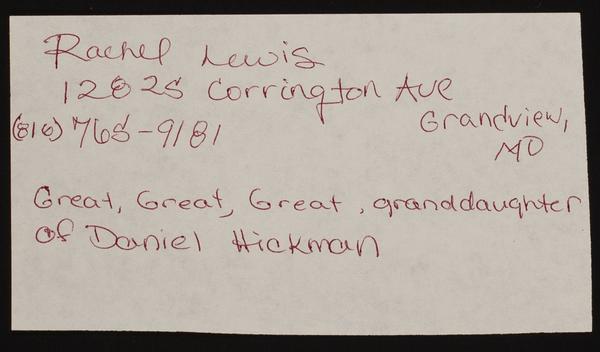 Rachel Lewis
12825 Corrington Ave
Grandview,
MO
(816) 765-9181
Great, Great, Great, granddaughter
of Daniel Hickman